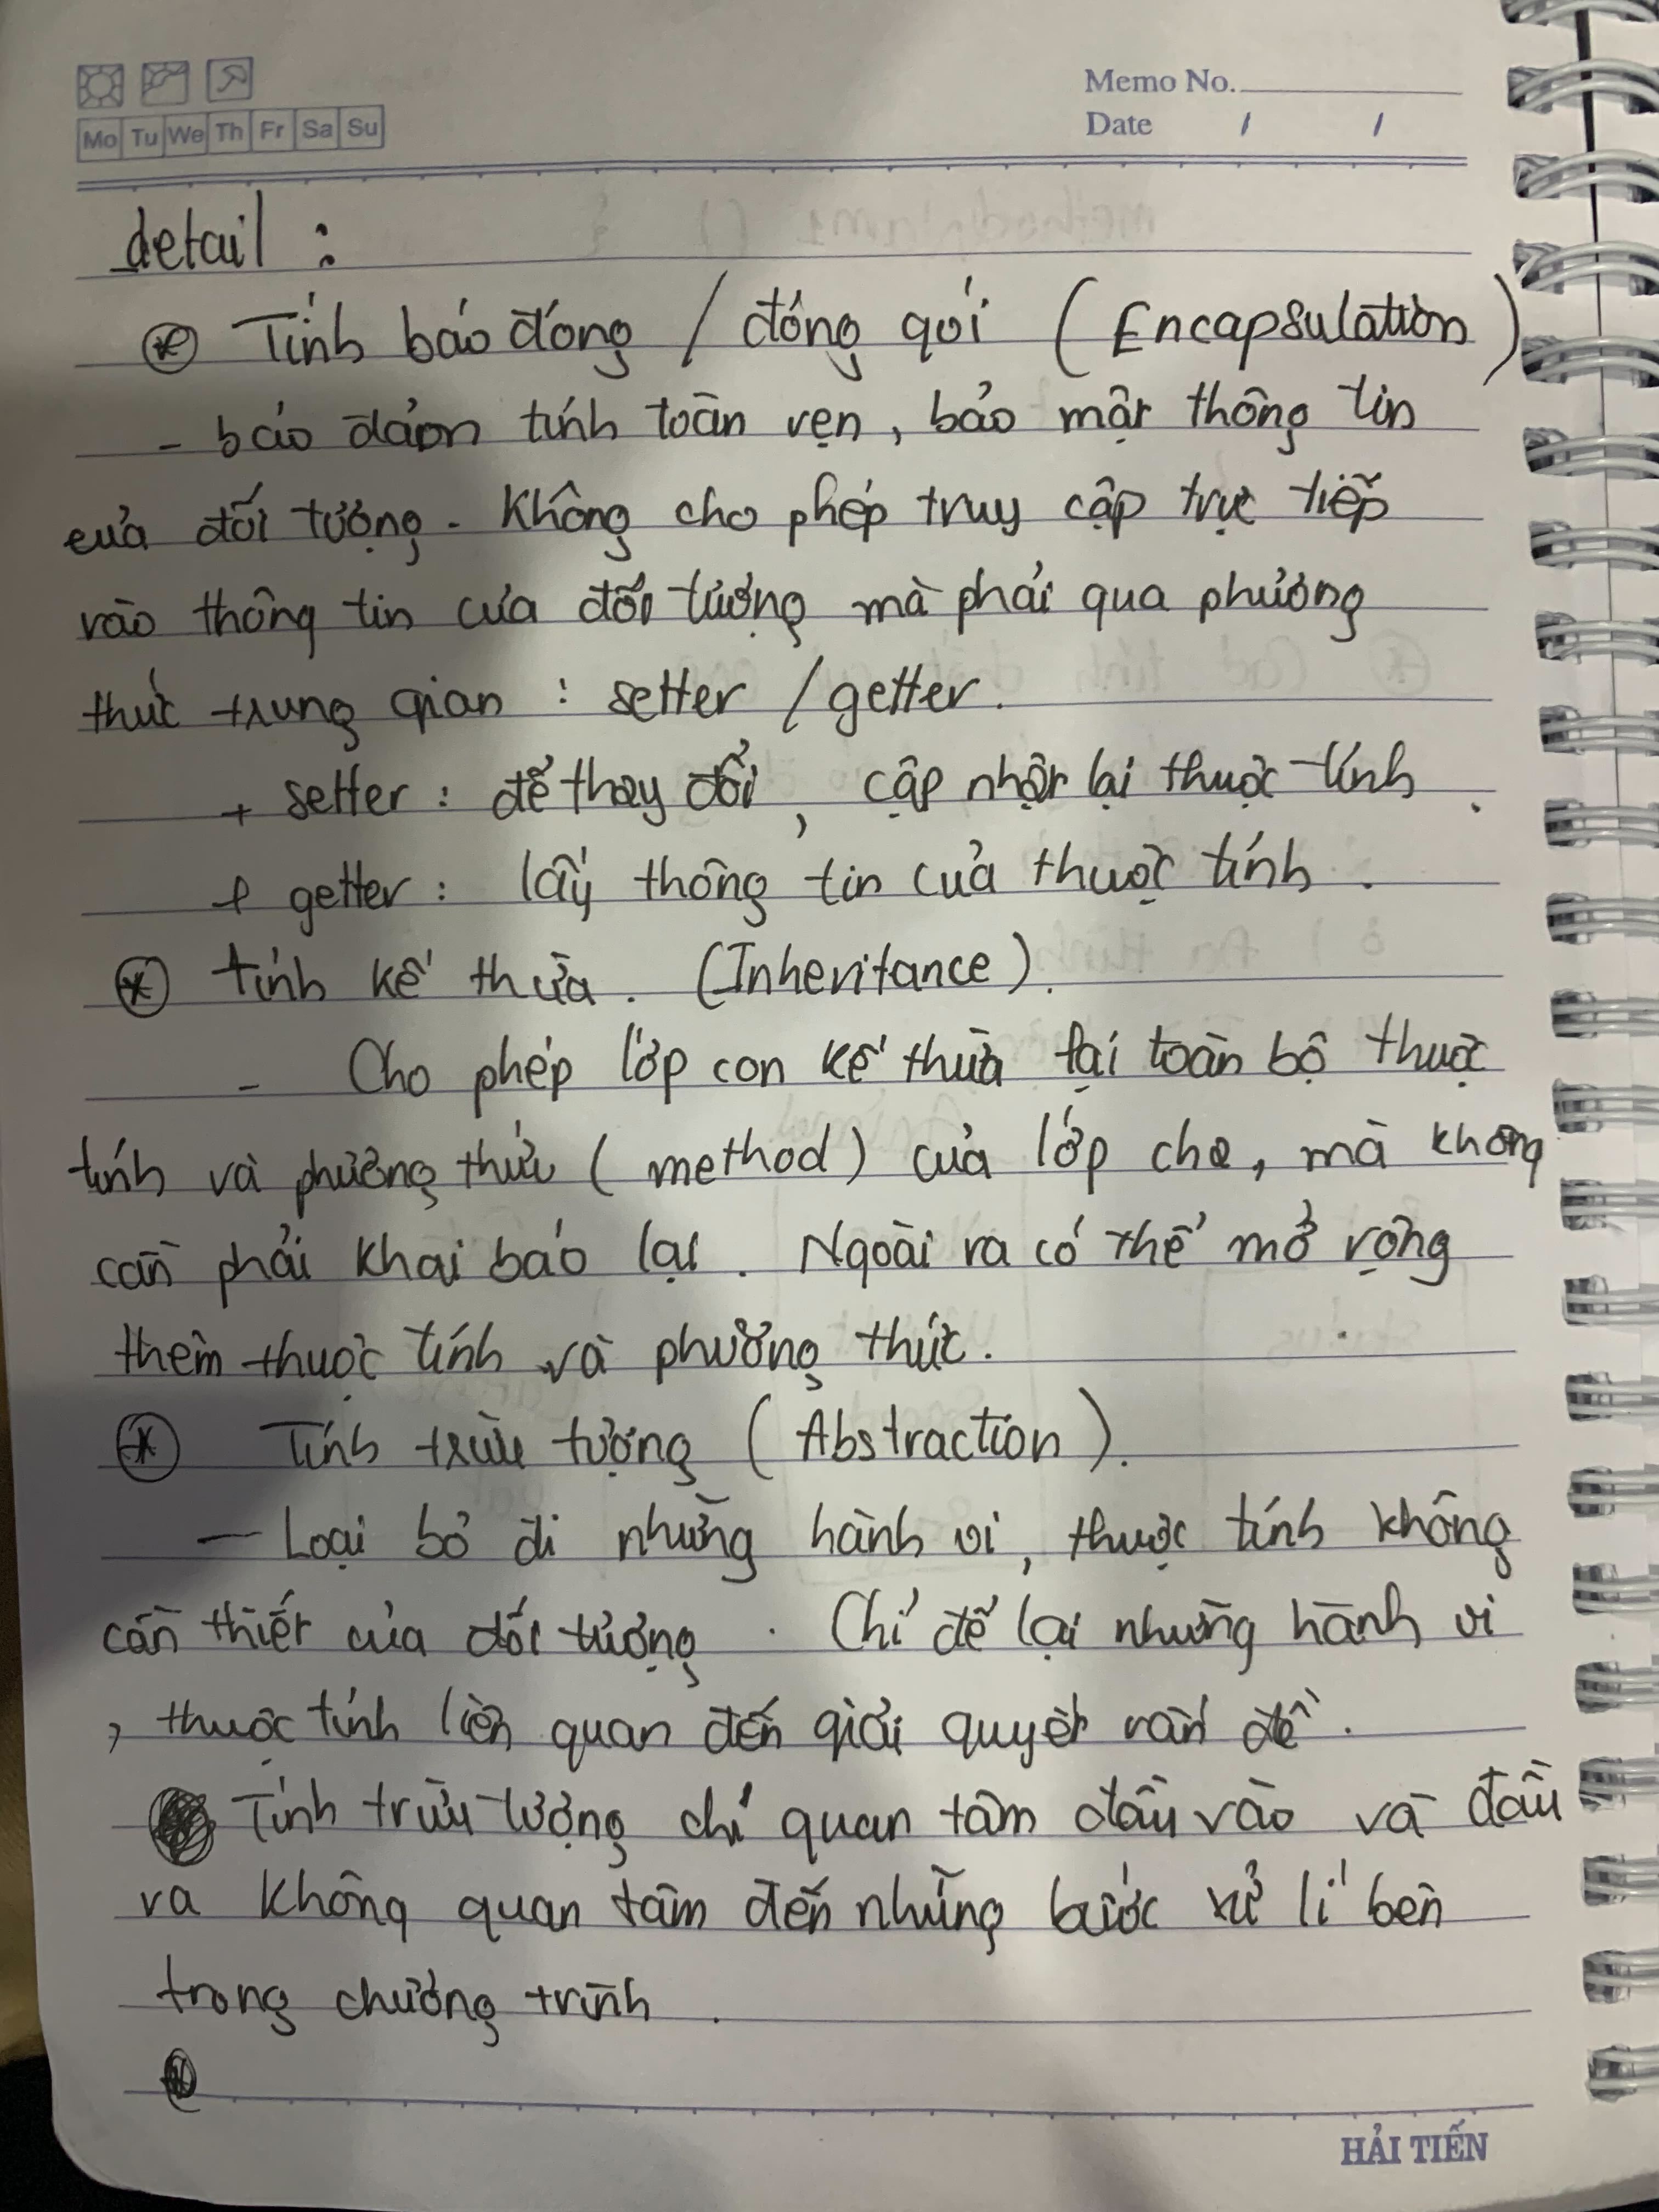 Memo No.
Mo Tu We Th Fr Sa Su
Date / /
detail :
* Tính báo đóng / đóng gói (Encapsulation)
- bảo đảm tính toàn vẹn, bảo mật thông tin
của đối tượng. Không cho phép truy cập trực tiếp
vào thông tin của đối tượng mà phải qua phương
thức trung gian : setter / getter.
+ setter : để thay đổi, cập nhật lại thuộc tính.
+ getter : lấy thông tin của thuộc tính.
* tính kế thừa. (Inheritance).
- Cho phép lớp con kế thừa lại toàn bộ thuộc
tính và phương thức (method) của lớp cha, mà không
cần phải khai báo lại. Ngoài ra có thể mở rộng
thêm thuộc tính và phương thức.
* Tính trừu tượng (Abstraction).
- Loại bỏ đi những hành vi, thuộc tính không
cần thiết của đối tượng. Chỉ để lại những hành vi
, thuộc tính liên quan đến giải quyết vấn đề.
Tính trừu tượng chỉ quan tâm đầu vào và đầu
ra không quan tâm đến những bước xử lí bên
trong chương trình.
HẢI TIẾN